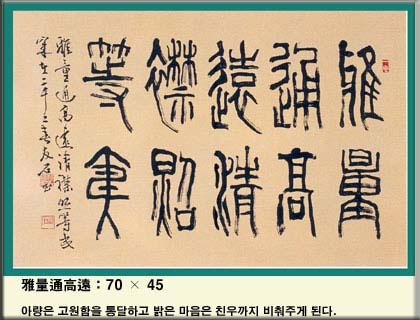 雅量
通高
遠清
襟照
等夷
雅量通高遠清襟照等夷
二千三春友石
雅量通高遠 : 70 × 45
아량은 고원함을 통달하고 밝은 마음은 친우까지 비춰주게 된다.